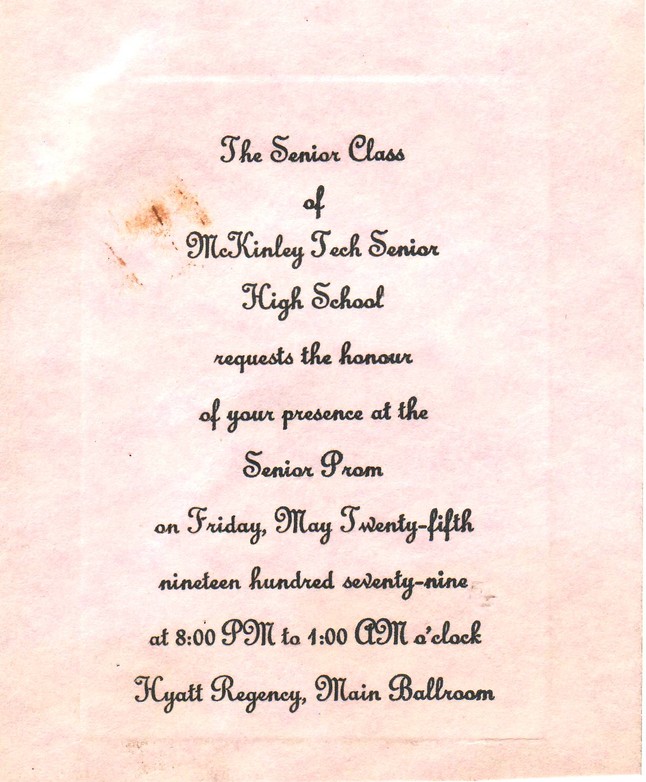 The Senior Class
of
McKinley Tech Senior
High School
requests the honour
of your presence at the
Senior Prom
on Friday, May Twenty-fifth
nineteen hundred seventy-nine
at 8:00 PM to 1:00 AM o'clock
Hyatt Regency, Main Ballroom